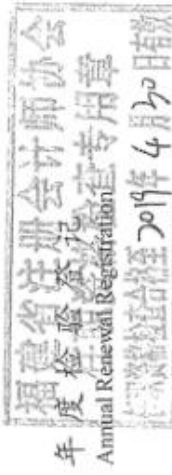 福建省注册会计师协会
年度检验登记
任职资格检查专用章
Annual Renewal Registration
任职资格检查合格至2019年4月30日有效